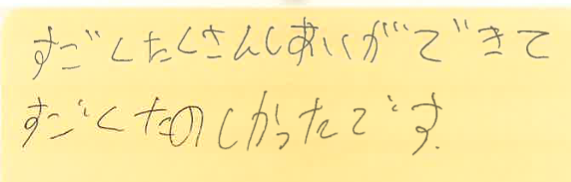 すごくたくさんしあいができて
すごくたのしかったです.